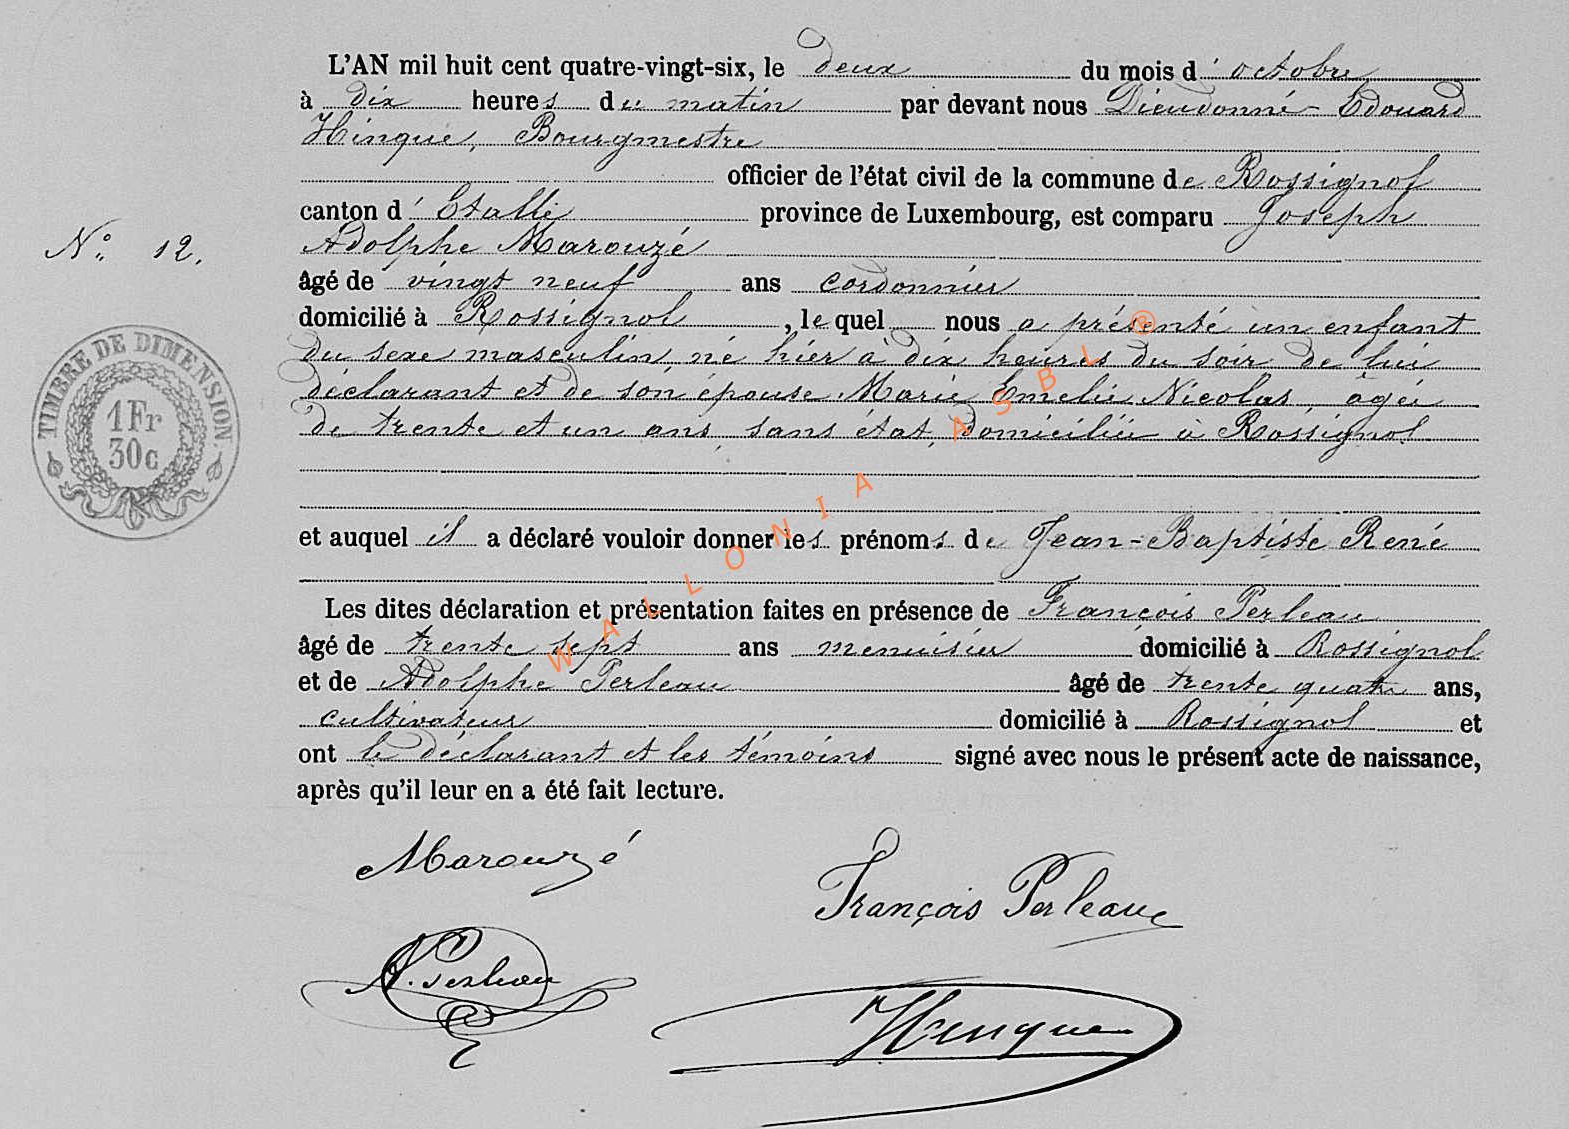 L'AN mil huit cent quatre-vingt-six, le deux du mois d'octobre
à dix heures du matin par devant nous Dieudonné-Edouard
Hinque, Bourgmestre
officier de l'état civil de la commune de Rossignol
canton d'Etalle province de Luxembourg, est comparu Joseph
N° 12. Adolphe Marouzé
âgé de vingt neuf ans cordonnier
domicilié à Rossignol, lequel nous a présenté un enfant
du sexe masculin, né hier à dix heures du soir de lui
déclarant et de son épouse Marie Emelie Nicolas, âgée
de trente et un ans, sans état, domiciliée à Rossignol
TIMBRE DE DIMENSION
1 Fr
30 c
et auquel il a déclaré vouloir donner les prénoms de Jean-Baptiste René
Les dites déclaration et présentation faites en présence de François Perleau
âgé de trente sept ans menuisier domicilié à Rossignol
et de Adolphe Perleau âgé de trente quatre ans,
cultivateur domicilié à Rossignol et
ont le déclarant et les témoins signé avec nous le présent acte de naissance,
après qu'il leur en a été fait lecture.
Marouzé
François Perleau
A. Perleau
Hinque
WALLONIA ASBL ®